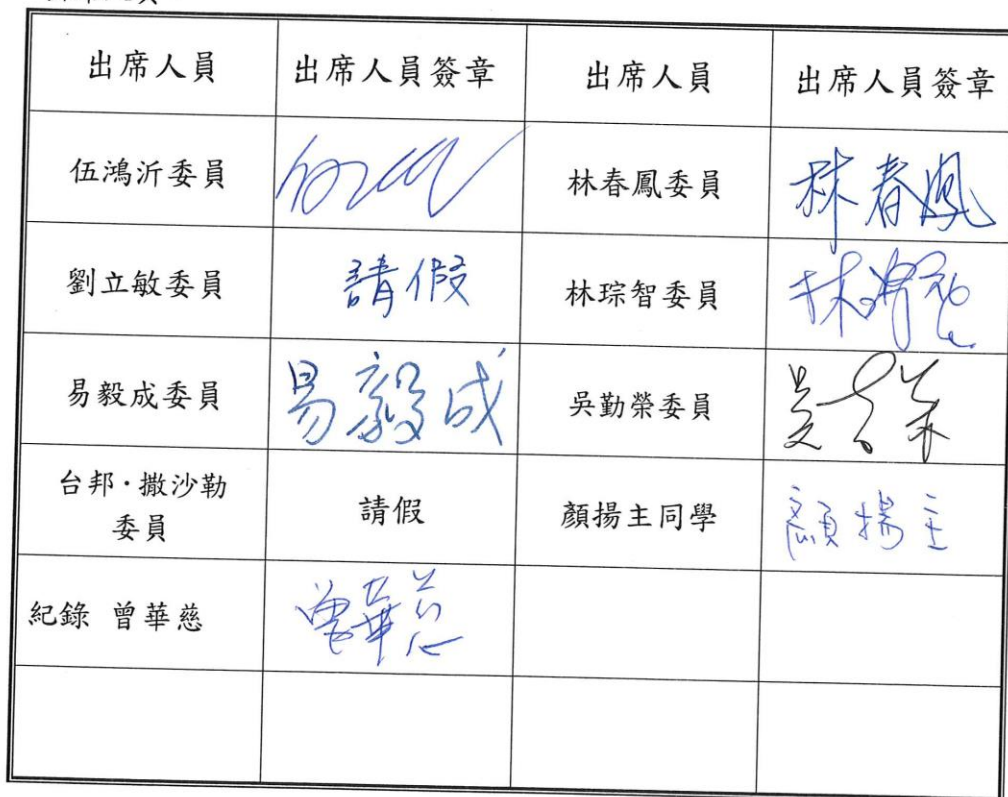 出席人員 出席人員簽章 出席人員 出席人員簽章
伍鴻沂委員 林春鳳委員 林春鳳
劉立敏委員 請假 林琮智委員 林琮智
易毅成委員 易毅成 吳勤榮委員 吳勤榮
台邦·撒沙勒
委員 請假 顏揚主同學 顏揚主
紀錄 曾華慈 曾華慈